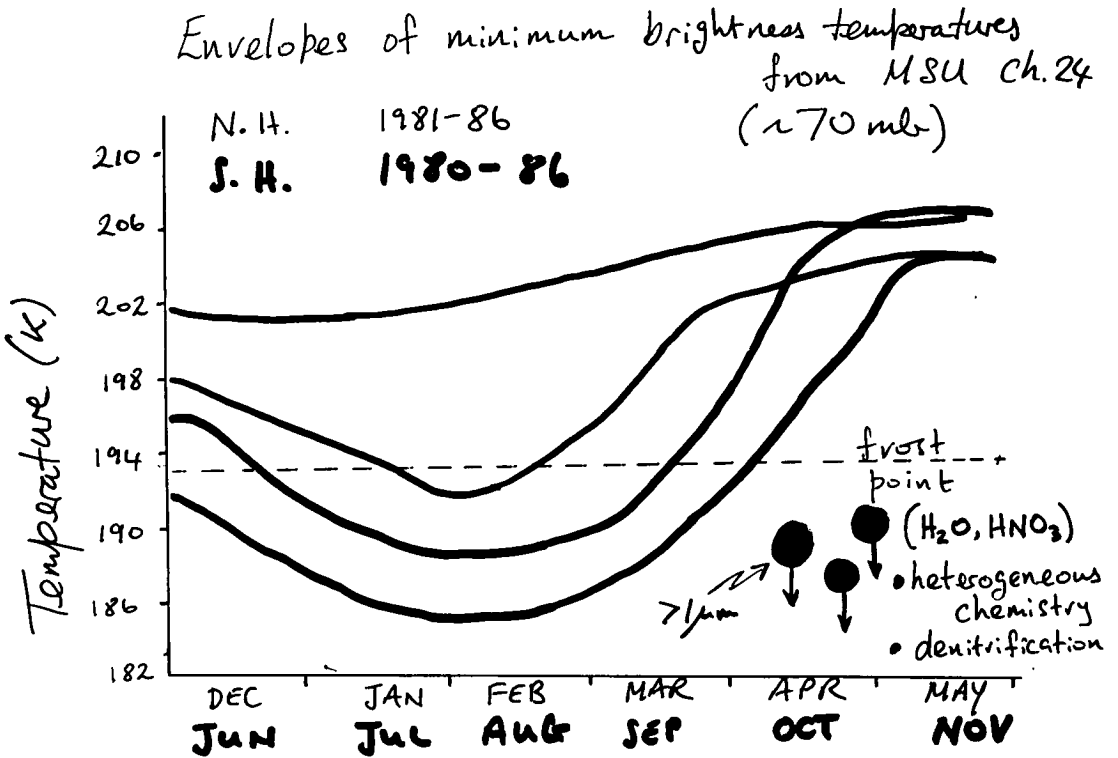 Envelopes of minimum brightness temperatures
from MSU Ch.24
(~70 mb)
N.H. 1981-86
S.H. 1980-86
210
206
202
198
194
190
186
182
Temperature (K)
frost
point
(H₂O, HNO₃)
• heterogeneous
chemistry
• denitrification
>1μm
DEC JAN FEB MAR APR MAY
JUN JUL AUG SEP OCT NOV